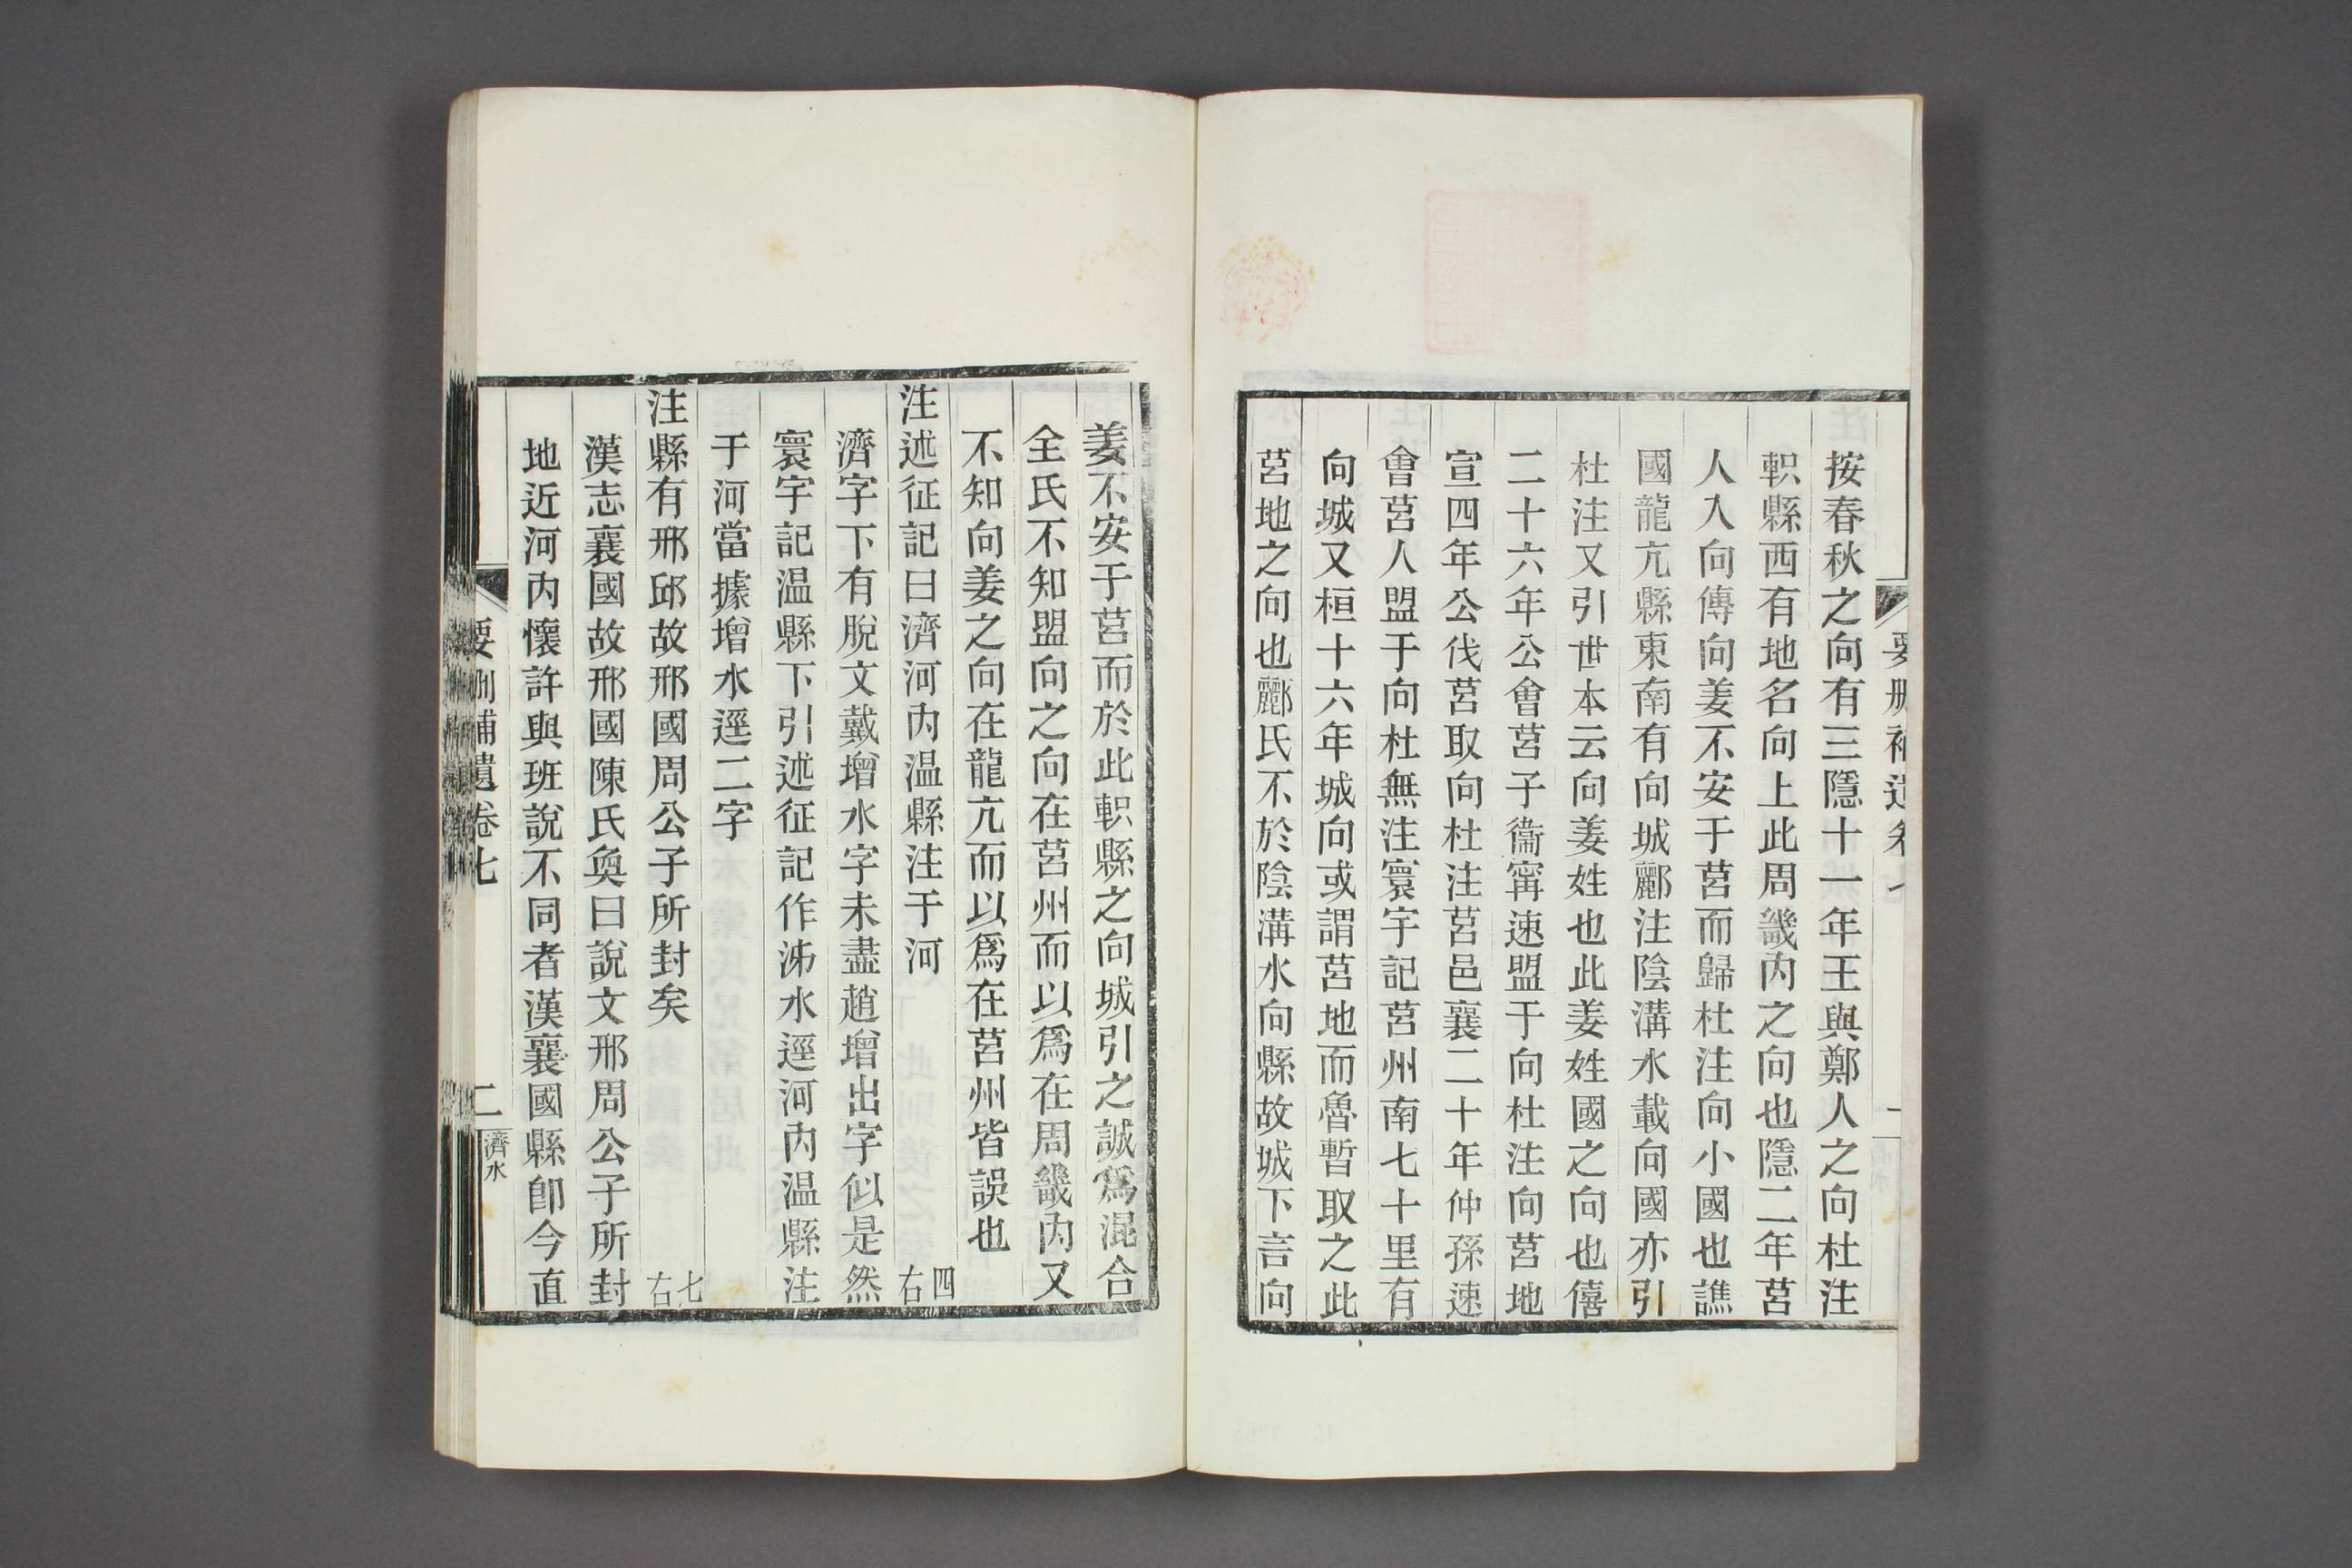 按春秋之向有三隱十一年王與鄭人之向杜注
軹縣西有地名向上此周畿內之向也隱二年莒
人入向傳向姜不安于莒而歸杜注向小國也譙
國龍亢縣東南有向城酈注陰溝水載向國亦引
杜注又引世本云向姜姓也此姜姓國之向也僖
二十六年公會莒子衞甯速盟于向杜注向莒地
宣四年公伐莒取向杜注莒邑襄二十年仲孫速
會莒人盟于向杜無注寰宇記莒州南七十里有
向城又桓十六年城向或謂莒地而魯暫取之此
莒地之向也酈氏不於陰溝水向縣故城下言向
姜不安于莒而於此軹縣之向城引之誠爲混合
全氏不知盟向之向在莒州而以爲在周畿內又
不知向姜之向在龍亢而以爲在莒州皆誤也
注述征記曰濟河內温縣注于河 四右
濟字下有脫文戴增水字未盡趙增出字似是然
寰宇記温縣下引述征記作泲水逕河內温縣注
于河當據增水逕二字
注縣有邢邱故邢國周公子所封矣 七右
漢志襄國故邢國陳氏奐曰說文邢周公子所封
地近河內懷許與班說不同者漢襄國縣卽今直
要刪補遺卷七
二
濟水